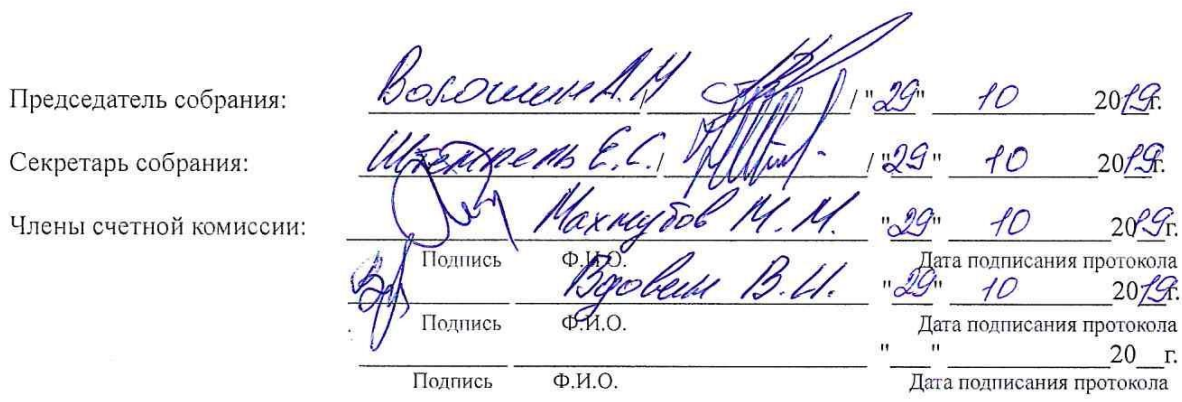 Председатель собрания: Волошин А.И / / "29" 10 2019г.
Секретарь собрания: Штемпель Е.С. / / "29" 10 2019г.
Члены счетной комиссии: Махмутов М.М. "29" 10 2019г.
Подпись Ф.И.О. Дата подписания протокола
Вдовин В.И. "29" 10 2019г.
Подпись Ф.И.О. Дата подписания протокола
" " 20 г.
Подпись Ф.И.О. Дата подписания протокола